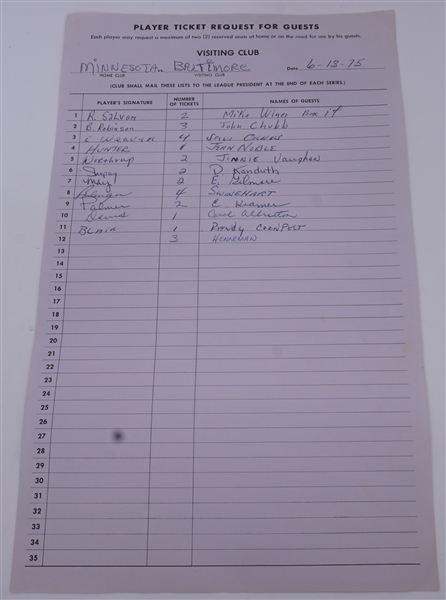 PLAYER TICKET REQUEST FOR GUESTS
Each player may request a maximum of two (2) reserved seats at home or on the road for use by his guests.
VISITING CLUB
Minnesota Baltimore Date 6-13-75
HOME CLUB VISITING CLUB
(CLUB SHALL MAIL THESE LISTS TO THE LEAGUE PRESIDENT AT THE END OF EACH SERIES.)
PLAYER'S SIGNATURE NUMBER OF TICKETS NAMES OF GUESTS
1 2 Mike
2 B. Robinson 3 John Chubb
3 4
4 HUNTER 1 JEAN NOBLE
5 Northrup 2 JINNIE Vaughan
6 2 D.
7 May 2 E. Gilmore
8 4 SWINEHART
9 Palmer 2 E. Kramer
10 1
11 BLAIR 1 RANDY
12 3 HENDEMAN
13
14
15
16
17
18
19
20
21
22
23
24
25
26
27
28
29
30
31
32
33
34
35